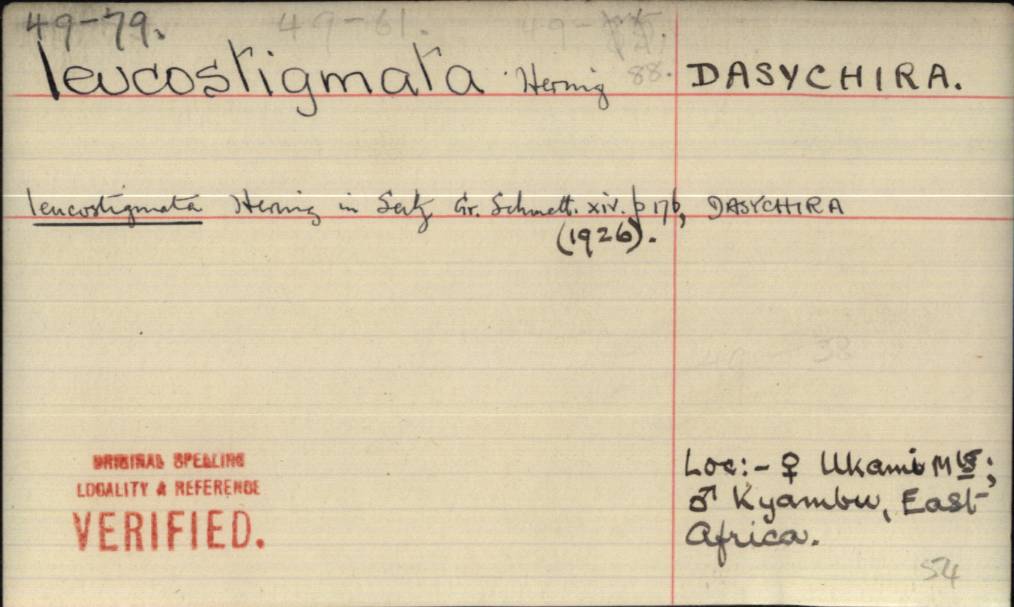 49-79. 49-61. 49-
leucostigmata Hering 88. DASYCHIRA.
leucostigmata Hering in Seitz Gr. Schmett. xiv. p 176, DASYCHIRA
(1926).
49 - 38
ORIGINAL SPELLING
LOCALITY & REFERENCE
VERIFIED.
Loc:- ♀ Ukami Mts;
♂ Kyambu, East
Africa.
54